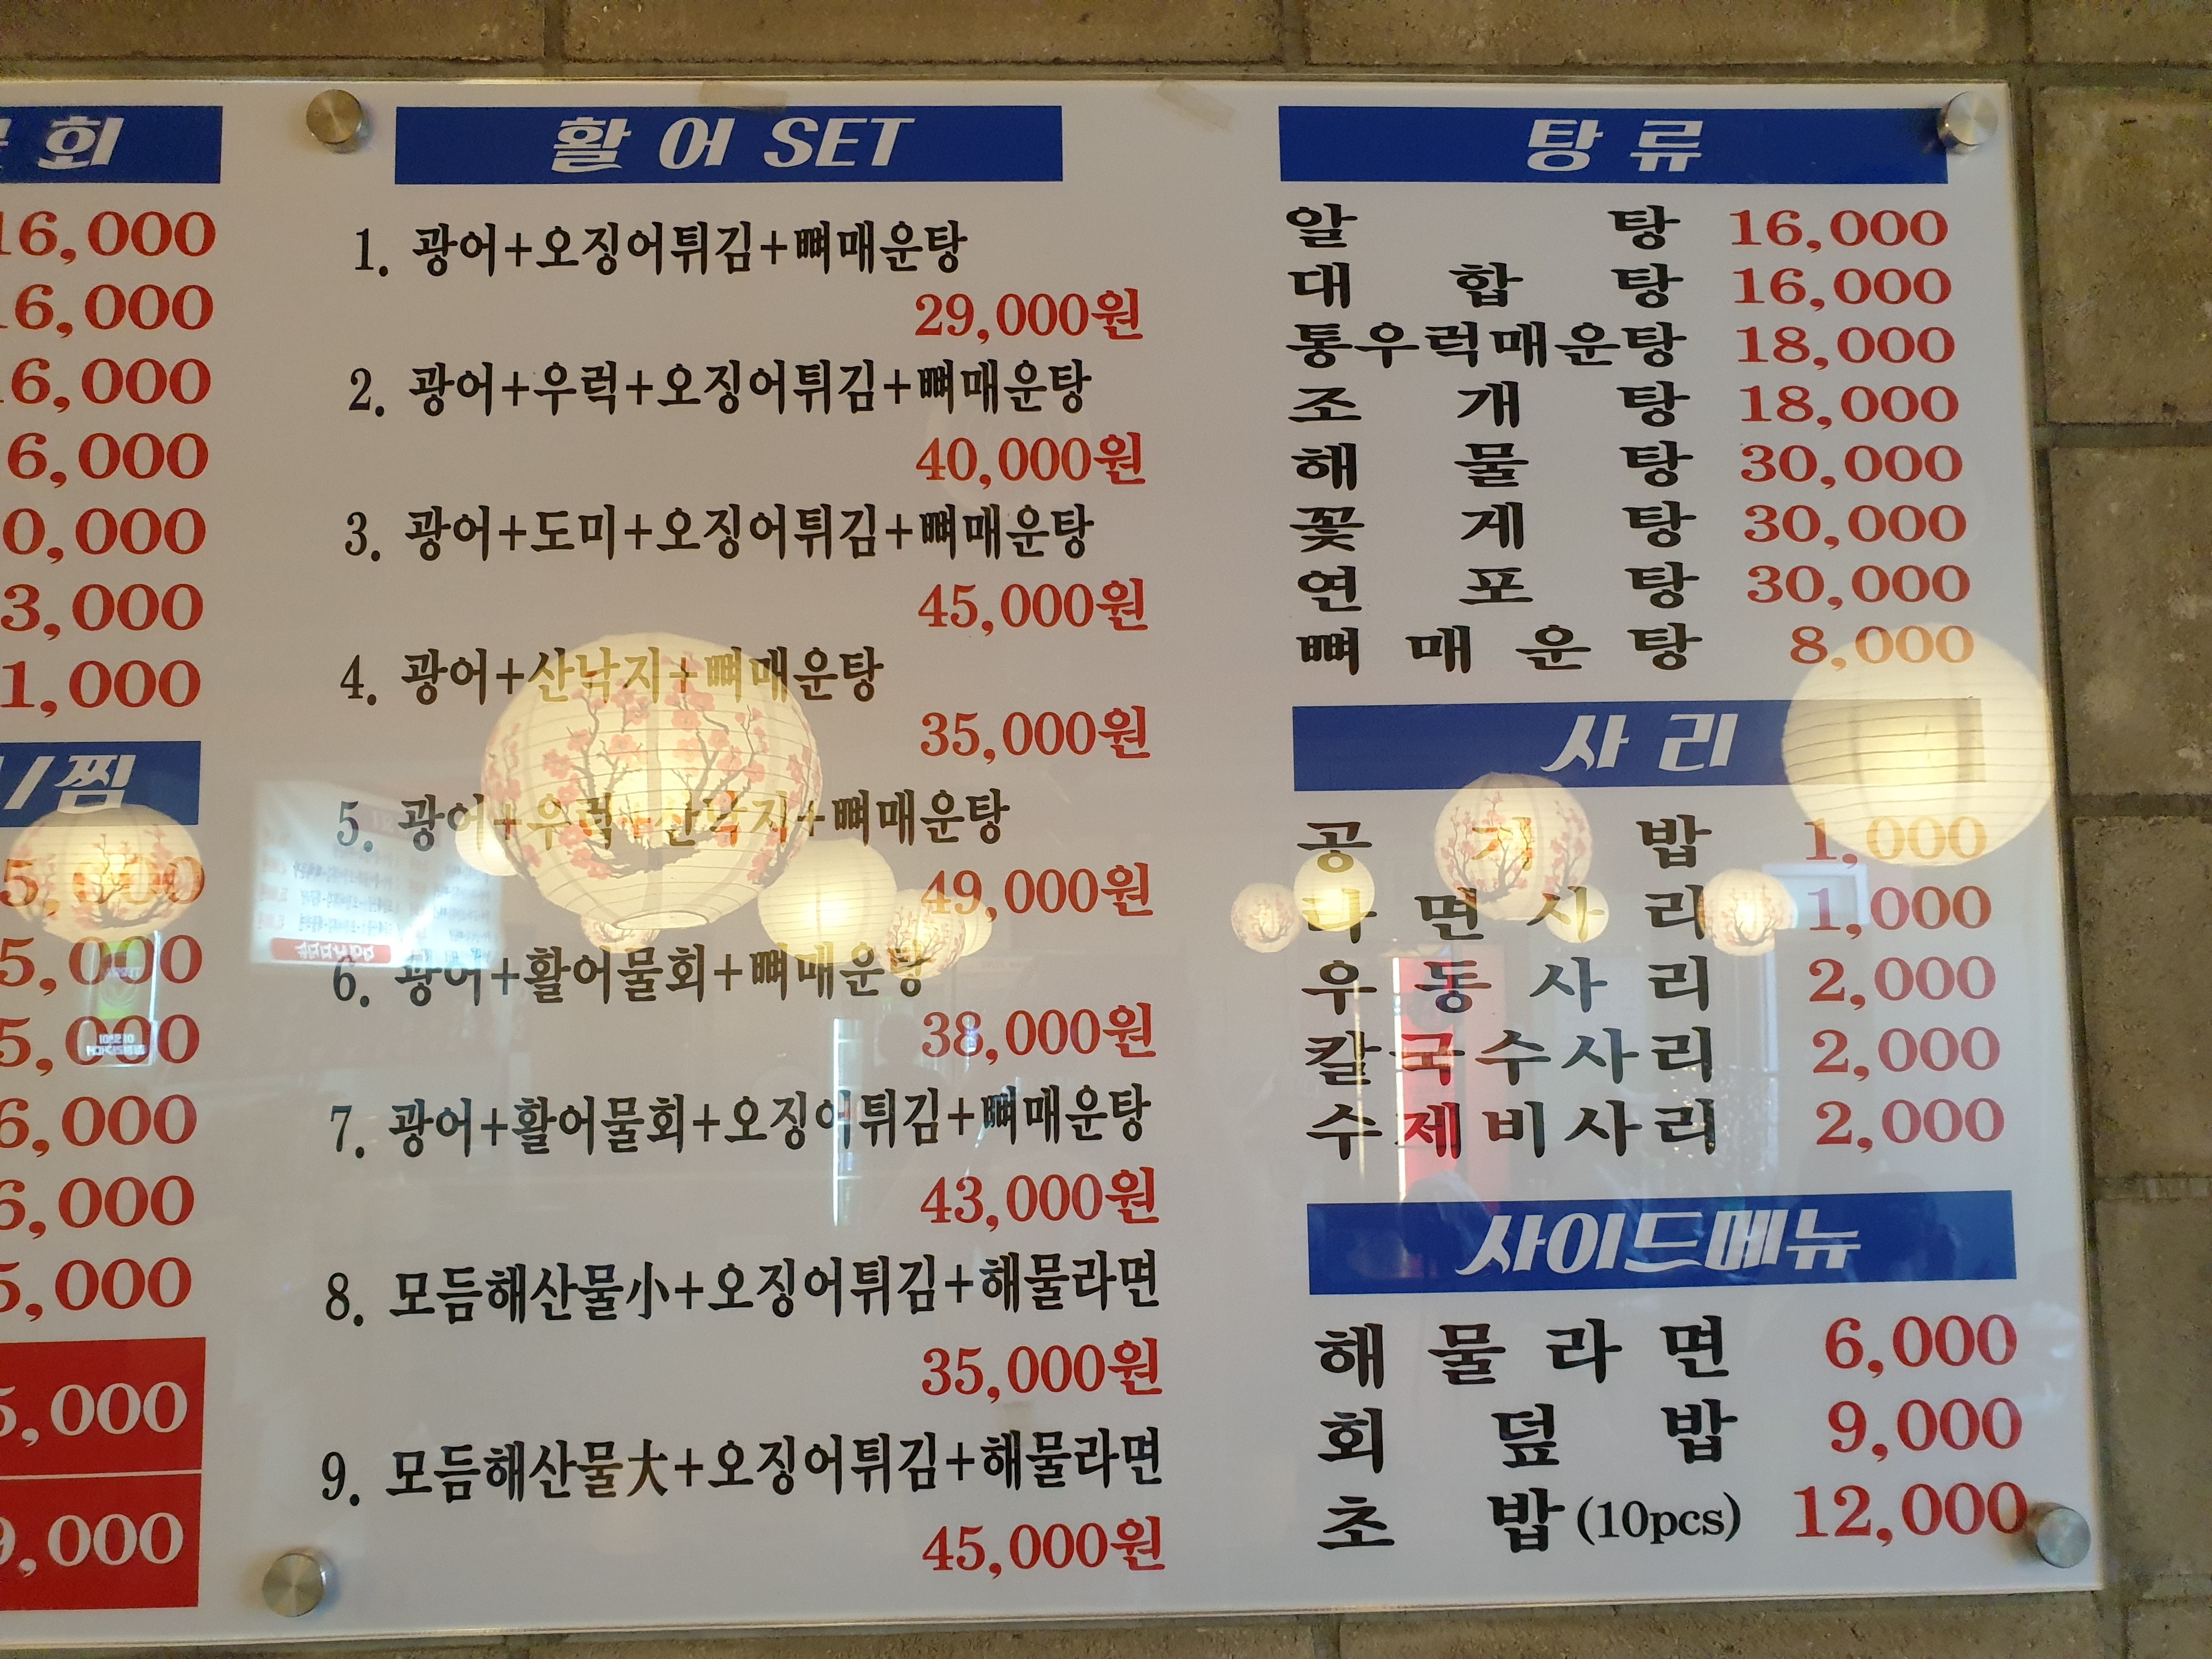 회
16,000
6,000
6,000
6,000
0,000
3,000
1,000
/찜
5,000
5,000
5,000
6,000
6,000
5,000
5,000
9,000
활어 SET
1. 광어+오징어튀김+뼈매운탕
29,000원
2. 광어+우럭+오징어튀김+뼈매운탕
40,000원
3. 광어+도미+오징어튀김+뼈매운탕
45,000원
4. 광어+산낙지+뼈매운탕
35,000원
5. 광어+우럭+산낙지+뼈매운탕
49,000원
6. 광어+활어물회+뼈매운탕
38,000원
7. 광어+활어물회+오징어튀김+뼈매운탕
43,000원
8. 모듬해산물小+오징어튀김+해물라면
35,000원
9. 모듬해산물大+오징어튀김+해물라면
45,000원
탕류
알탕 16,000
대합탕 16,000
통우럭매운탕 18,000
조개탕 18,000
해물탕 30,000
꽃게탕 30,000
연포탕 30,000
뼈매운탕 8,000
사리
공기밥 1,000
라면사리 1,000
우동사리 2,000
칼국수사리 2,000
수제비사리 2,000
사이드메뉴
해물라면 6,000
회덮밥 9,000
초밥(10pcs) 12,000